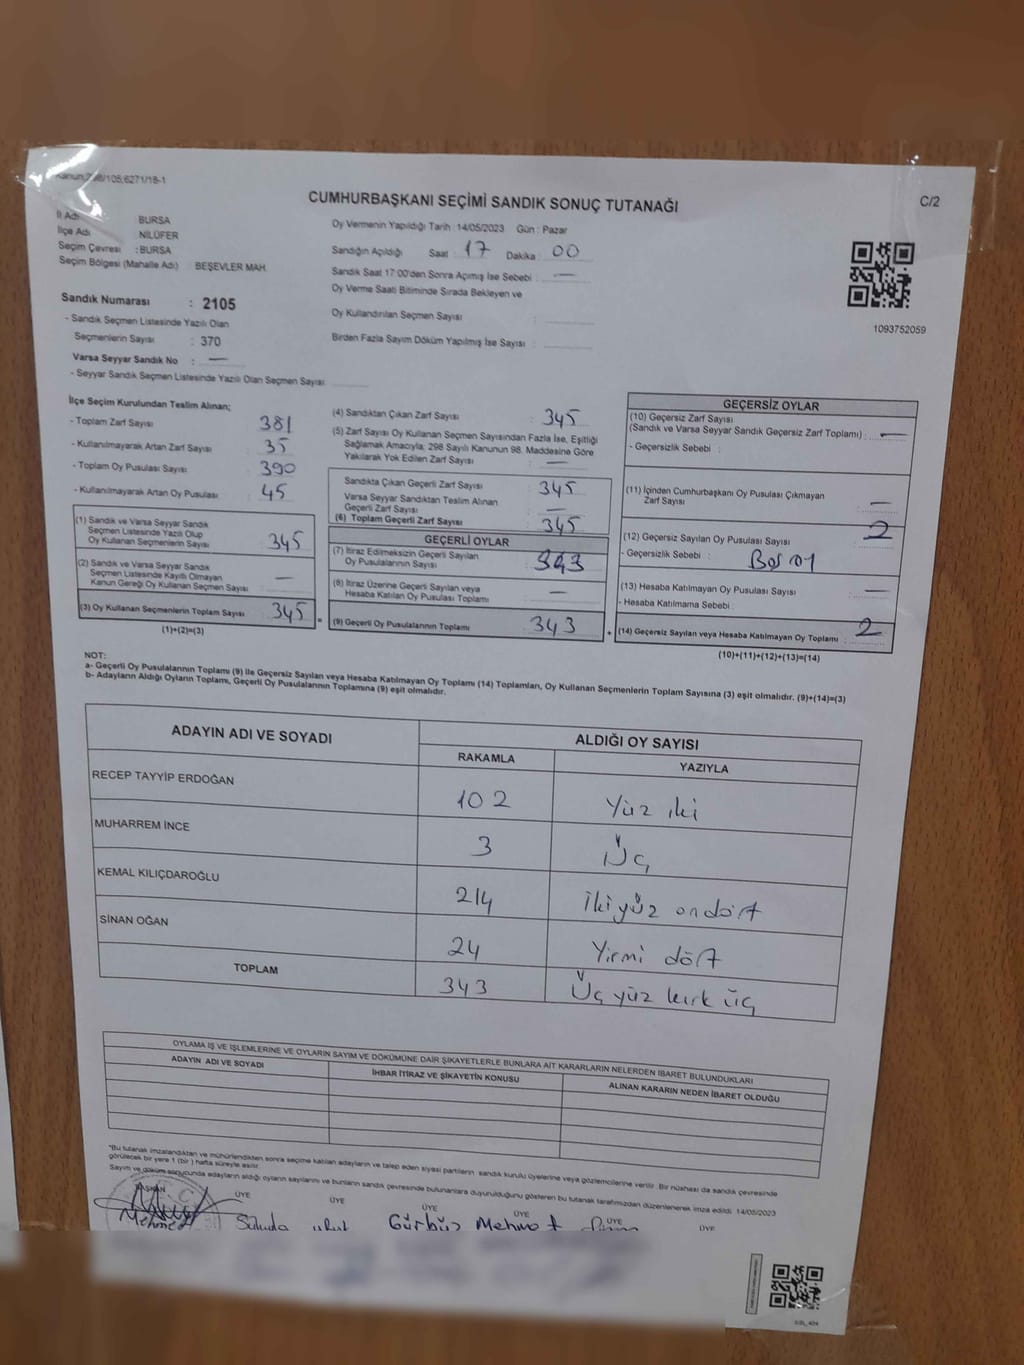 Kanun:298/105;6271/18-1
CUMHURBAŞKANI SEÇİMİ SANDIK SONUÇ TUTANAĞI
C/2
İl Adı : BURSA
İlçe Adı : NİLÜFER
Seçim Çevresi : BURSA
Seçim Bölgesi (Mahalle Adı) : BEŞEVLER MAH.
Sandık Numarası : 2105
- Sandık Seçmen Listesinde Yazılı Olan
Seçmenlerin Sayısı : 370
Varsa Seyyar Sandık No : —
- Seyyar Sandık Seçmen Listesinde Yazılı Olan Seçmen Sayısı
Oy Vermenin Yapıldığı Tarih : 14/05/2023 Gün : Pazar
Sandığın Açıldığı Saat 17 Dakika 00
Sandık Saat 17:00'den Sonra Açılmış İse Sebebi : —
Oy Verme Saati Bitiminde Sırada Bekleyen ve
Oy Kullandırılan Seçmen Sayısı :
Birden Fazla Sayım Döküm Yapılmış İse Sayısı :
1093752059
İlçe Seçim Kurulundan Teslim Alınan;
- Toplam Zarf Sayısı : 381
- Kullanılmayarak Artan Zarf Sayısı : 35
- Toplam Oy Pusulası Sayısı : 390
- Kullanılmayarak Artan Oy Pusulası : 45
(1) Sandık ve Varsa Seyyar Sandık
Seçmen Listesinde Yazılı Olup
Oy Kullanan Seçmenlerin Sayısı : 345
(2) Sandık ve Varsa Seyyar Sandık
Seçmen Listesinde Kayıtlı Olmayan
Kanun Gereği Oy Kullanan Seçmen Sayısı : —
(3) Oy Kullanan Seçmenlerin Toplam Sayısı : 345
(1)+(2)=(3)
(4) Sandıktan Çıkan Zarf Sayısı : 345
(5) Zarf Sayısı Oy Kullanan Seçmen Sayısından Fazla İse, Eşitliği
Sağlamak Amacıyla; 298 Sayılı Kanunun 98. Maddesine Göre
Yakılarak Yok Edilen Zarf Sayısı : —
Sandıkta Çıkan Geçerli Zarf Sayısı : 345
Varsa Seyyar Sandıktan Teslim Alınan
Geçerli Zarf Sayısı : —
(6) Toplam Geçerli Zarf Sayısı : 345
GEÇERLİ OYLAR
(7) İtiraz Edilmeksizin Geçerli Sayılan
Oy Pusulalarının Sayısı : 343
(8) İtiraz Üzerine Geçerli Sayılan veya
Hesaba Katılan Oy Pusulası Toplamı : —
(9) Geçerli Oy Pusulalarının Toplamı : 343
GEÇERSİZ OYLAR
(10) Geçersiz Zarf Sayısı
(Sandık ve Varsa Seyyar Sandık Geçersiz Zarf Toplamı) : —
- Geçersizlik Sebebi :
(11) İçinden Cumhurbaşkanı Oy Pusulası Çıkmayan
Zarf Sayısı : —
(12) Geçersiz Sayılan Oy Pusulası Sayısı : 2
- Geçersizlik Sebebi : Boş oy
(13) Hesaba Katılmayan Oy Pusulası Sayısı : —
- Hesaba Katılmama Sebebi :
(14) Geçersiz Sayılan veya Hesaba Katılmayan Oy Toplamı : 2
(10)+(11)+(12)+(13)=(14)
NOT:
a- Geçerli Oy Pusulalarının Toplamı (9) ile Geçersiz Sayılan veya Hesaba Katılmayan Oy Toplamı (14) Toplamları, Oy Kullanan Seçmenlerin Toplam Sayısına (3) eşit olmalıdır. (9)+(14)=(3)
b- Adayların Aldığı Oyların Toplamı, Geçerli Oy Pusulalarının Toplamına (9) eşit olmalıdır.
ADAYIN ADI VE SOYADI ALDIĞI OY SAYISI
RAKAMLA YAZIYLA
RECEP TAYYİP ERDOĞAN 102 Yüz iki
MUHARREM İNCE 3 Üç
KEMAL KILIÇDAROĞLU 214 İkiyüz ondört
SİNAN OĞAN 24 Yirmi dört
TOPLAM 343 Üç yüz kırk üç
OYLAMA İŞ VE İŞLEMLERİNE VE OYLARIN SAYIM VE DÖKÜMÜNE DAİR ŞİKAYETLERLE BUNLARA AİT KARARLARIN NELERDEN İBARET BULUNDUKLARI
ADAYIN ADI VE SOYADI İHBAR İTİRAZ VE ŞİKAYETİN KONUSU ALINAN KARARIN NEDEN İBARET OLDUĞU
*Bu tutanak imzalandıktan ve mühürlendikten sonra seçime katılan adayların ve talep eden siyasi partilerin sandık kurulu üyelerine veya gözlemcilerine verilir. Bir nüshası da sandık çevresinde
görülecek bir yere 1 (bir) hafta süreyle asılır.
Sayım ve döküm sonucunda adayların aldığı oyların sayılarını ve bunların sandık çevresinde bulunanlara duyurulduğunu gösteren bu tutanak tarafımızdan düzenlenerek imza edildi. 14/05/2023
BAŞKAN ÜYE ÜYE ÜYE ÜYE ÜYE ÜYE
Mehmet Gürbüz Mehmet